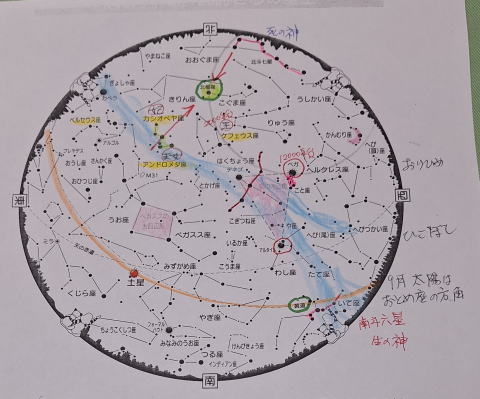 北
死の神
やまねこ座
おおぐま座
北斗七星
ぎょしゃ座
カペラ
きりん座
北極星
こぐま座
うしかい座
ペルセウス座
カシオペヤ座
ケフェウス座
りゅう座
かんむり座
アルゴル
プレアデス
さんかく座
アンドロメダ座
M31
はくちょう座
デネブ
ベガ
ヘルクレス座
へび(頭)座
おりひめ
おうし座
おひつじ座
とかげ座
こと座
東
西
うお座
ペガスス座
こぎつね座
や座
へびつかい座
へび(尾)座
ひこぼし
ミラ
天の赤道
いるか座
アルタイル
みずがめ座
こうま座
わし座
たて座
くじら座
土星
やぎ座
黄道
いて座
9月 太陽は
おとめ座の方角
南斗六星
生の神
ちょうこくしつ座
フォーマルハウト
みなみのうお座
けんびきょう座
つる座
インディアン座
南